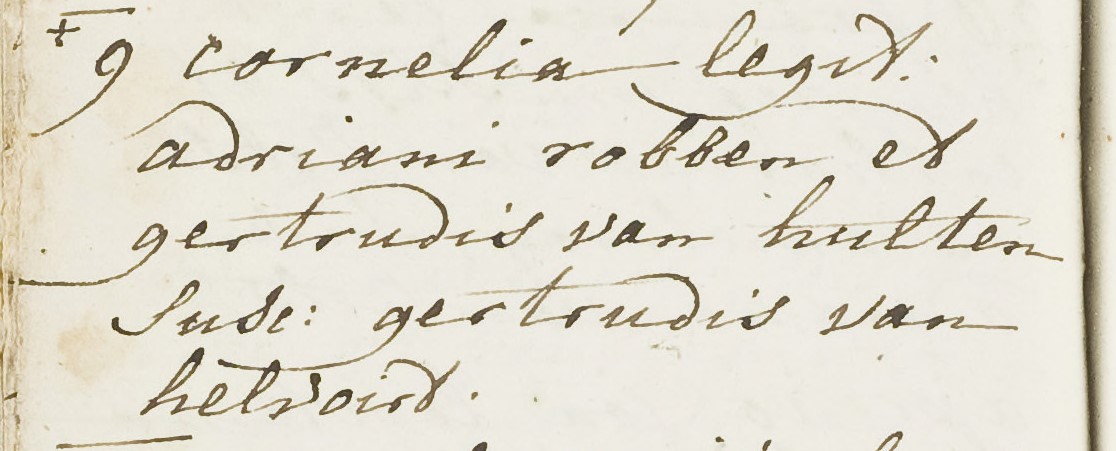 + 9 cornelia legit:
adriani robben et
gertrudis van hulten
Susc: gertrudis van
helvoirt.